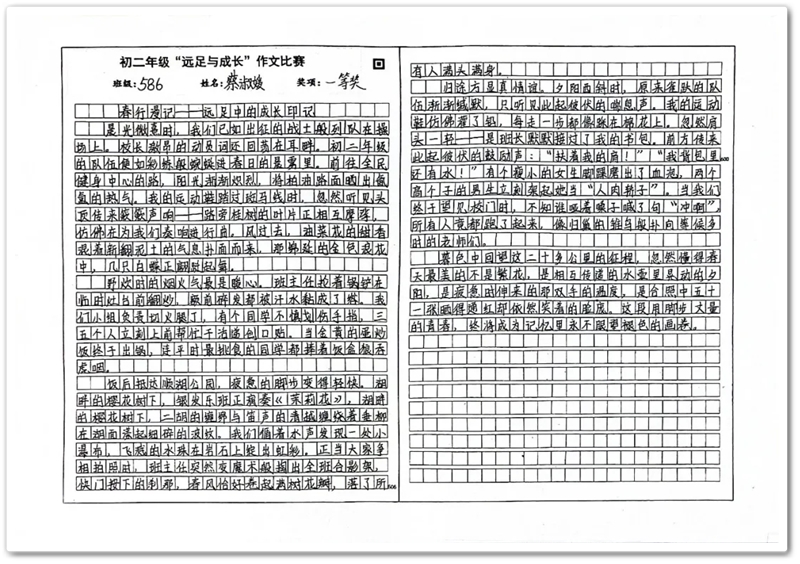 初二年级“远足与成长”作文比赛
班级:586 姓名:蔡淑媛 奖项:一等奖
春行漫记——远足中的成长印记
晨光微熹时,我们已如出征的战士般列队在操
场上。校长激昂的动员词还回荡在耳畔。初二年级
的队伍便如彩练般蜿蜒进春日的晨雾里。前往全民
健身中心的路,阳光渐渐炽烈,将柏油路面晒出氤
氲的热气。我的运动鞋踏过斑马线时,忽然听见头
顶传来簌簌声响——路旁桂树的叶片正相互摩挲,
仿佛在为我们奏响进行曲。风过去,油菜花的甜香
混着新翻泥土的气息扑面而来,那绵延的金色浪花
中,几只白蝶正翩跹起舞。
野炊时的烟火气最是暖心。班主任抡着锅铲在
临时灶台前翻炒,额前碎发都被汗水黏成了绺。我
们小组负责切火腿丁,有个同学不慎划伤手指,三
五个人立刻上前帮忙于沾临创口贴。当金黄的蛋炒
饭终于出锅,连平时最挑食的同学都捧着饭盒狼吞
虎咽。
饭后抵达顺湖公园,疲惫的脚步变得轻快。湖
畔的樱花树下,银发乐班正演奏《茉莉花》,湖畔
的樱花树下,二胡的缠绵与笛声的清越缠绕着垂柳
在湖面漾起细碎的波纹。我们循着水声发现一处小
瀑布,飞溅的水珠在岩石上绽出虹彩。正当大家争
相拍照时,班主任突然变魔术般掏出全班合影架,
快门按下的刹那,春风恰好卷起满树花瓣,落了所
有人满头满身。
归途方显真情谊。夕阳西斜时,原来雀跃的队
伍渐渐缄默,只听见此起彼伏的喘息声。我的运动
鞋仿佛灌了铅,每走一步都像踩在棉花上。忽然肩
头一轻——是班长默默接过了我的书包。前方传来
此起彼伏的鼓励声:“扶着我的肩!”“我背包里
还有水!”有个瘦小的女生脚踝磨出了血泡,两个
高个子的男生立刻架起她当“人肉轿子”。当我们
终于望见校门时,不知谁哑着嗓子喊了句“冲啊”。
所有人竟都跑了起来,像归巢的雏鸟般扑向等候多
时的老师们。
暮色中回望这二十多公里的征程,忽然懂得春
天最美的不是繁花,是相互传递的水壶里晃动的夕
阳,是疲惫时伸来的那双手的温度,是合照中五十
一张晒得通红却依然笑着的脸庞。这段用脚步丈量
的青春,终将成为记忆里永不褪色的画卷。